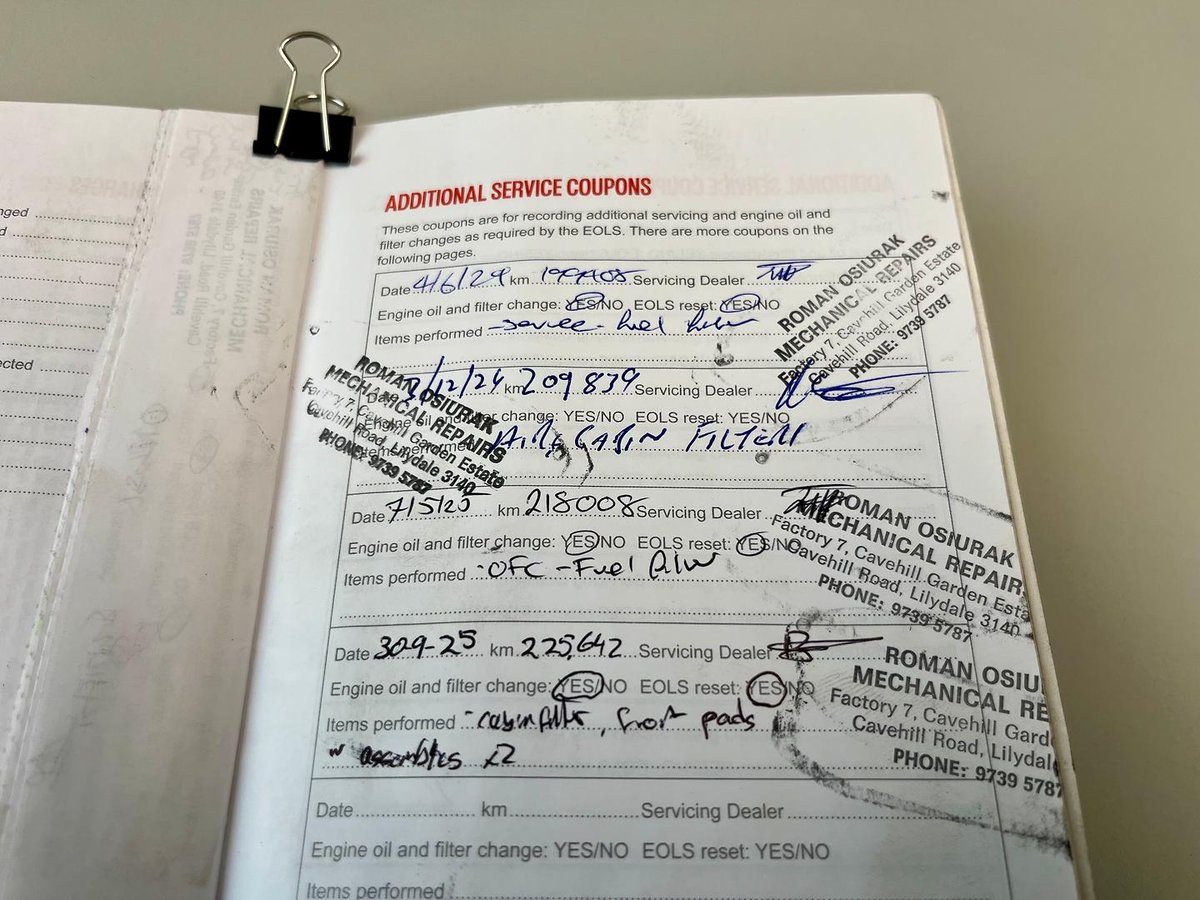 ADDITIONAL SERVICE COUPONS
These coupons are for recording additional servicing and engine oil and
filter changes as required by the EOLS. There are more coupons on the
following pages.
Date 4/6/24 km 199405 Servicing Dealer
Engine oil and filter change: YES/NO EOLS reset: YES/NO
Items performed - service - fuel filter
ROMAN OSIURAK
MECHANICAL REPAIRS
Factory 7, Cavehill Garden Estate
Cavehill Road, Lilydale 3140
PHONE: 9739 5787
/12/24 km 209,839 Servicing Dealer
Engine oil and filter change: YES/NO EOLS reset: YES/NO
Items performed AIR & CABIN FILTERS
ROMAN OSIURAK
MECHANICAL REPAIRS
Factory 7, Cavehill Garden Estate
Cavehill Road, Lilydale 3140
PHONE: 9739 5787
Date 7/5/25 km 218008 Servicing Dealer
Engine oil and filter change: YES/NO EOLS reset: YES/NO
Items performed - OFC - Fuel filter
ROMAN OSIURAK
MECHANICAL REPAIRS
Factory 7, Cavehill Garden Esta
Cavehill Road, Lilydale 3140
PHONE: 9739 5787
Date 30-9-25 km 225,642 Servicing Dealer
Engine oil and filter change: YES/NO EOLS reset: YES/NO
Items performed - cabin filter, front pads
assemblies x2
ROMAN OSIU
MECHANICAL RE
Factory 7, Cavehill Gard
Cavehill Road, Lilydal
PHONE: 9739 5787
Date km Servicing Dealer
Engine oil and filter change: YES/NO EOLS reset: YES/NO
Items performed
nged
d
ected